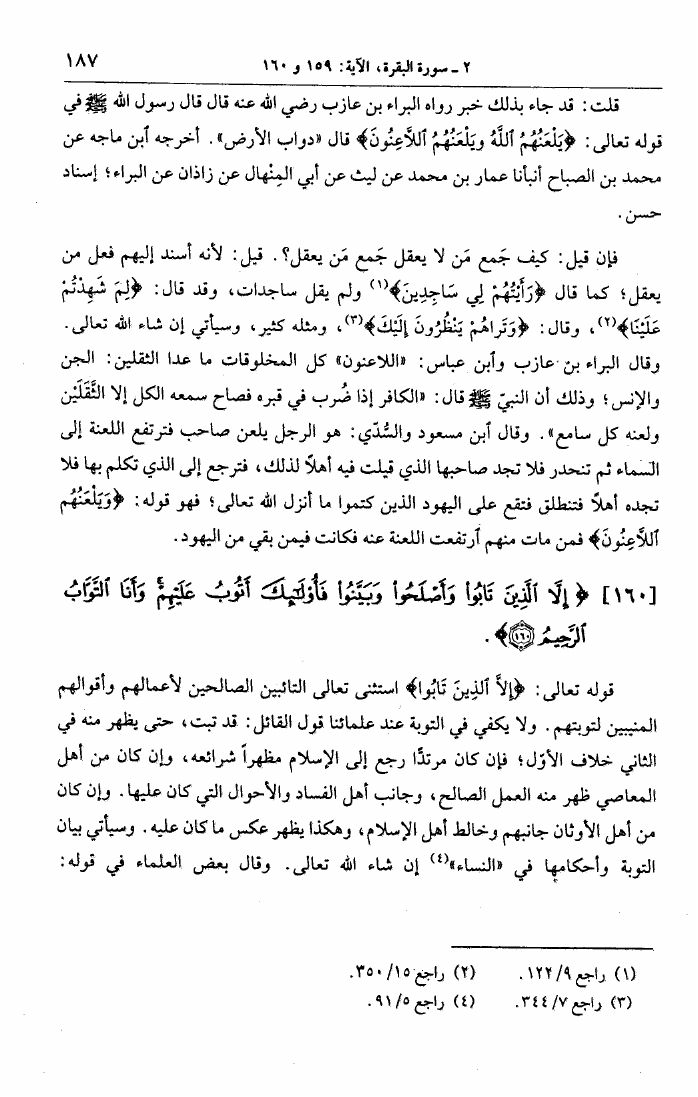 ٢ ـ سورة البقرة، الآية: ١٥٩ و ١٦٠
١٨٧
قلت: قد جاء بذلك خبر رواه البراء بن عازب رضي الله عنه قال قال رسول الله ﷺ في
قوله تعالى: ﴿يَلْعَنُهُمُ ٱللَّهُ ويَلْعَنُهُمُ ٱللَّاعِنُونَ﴾ قال «دواب الأرض». أخرجه ٱبن ماجه عن
محمد بن الصباح أنبأنا عمار بن محمد عن ليث عن أبي المِنْهال عن زاذان عن البراء؛ إسناد
حسن.
فإن قيل: كيف جَمع مَن لا يعقل جَمع مَن يعقل؟. قيل: لأنه أسند إليهم فعل من
يعقل؛ كما قال ﴿رَأَيْتُهُمْ لِي سَاجِدِينَ﴾(١) ولم يقل ساجدات، وقد قال: ﴿لِمَ شَهِدْتُمْ
عَلَيْنَا﴾(٢)، وقال: ﴿وَتَراهُمْ يَنْظُرُونَ إِلَيْكَ﴾(٣)، ومثله كثير، وسيأتي إن شاء الله تعالى.
وقال البراء بن عازب وٱبن عباس: «اللاعنون» كل المخلوقات ما عدا الثقلين: الجن
والإنس؛ وذلك أن النبيّ ﷺ قال: «الكافر إذا ضُرب في قبره فصاح سمعه الكل إلا الثَّقَلَيْن
ولعنه كل سامع». وقال ٱبن مسعود والسُّدّي: هو الرجل يلعن صاحب فترتفع اللعنة إلى
السماء ثم تنحدر فلا تجد صاحبها الذي قيلت فيه أهلاً لذلك، فترجع إلى الذي تكلم بها فلا
تجده أهلاً فتنطلق فتقع على اليهود الذين كتموا ما أنزل الله تعالى؛ فهو قوله: ﴿وَيَلْعَنُهُم
ٱللَّاعِنُونَ﴾ فمن مات منهم ٱرتفعت اللعنة عنه فكانت فيمن بقي من اليهود.
[١٦٠] ﴿ إِلَّا ٱلَّذِينَ تَابُوا۟ وَأَصْلَحُوا۟ وَبَيَّنُوا۟ فَأُو۟لَٰٓئِكَ أَتُوبُ عَلَيْهِمْ ۚ وَأَنَا ٱلتَّوَّابُ
ٱلرَّحِيمُ ١٦٠﴾.
قوله تعالى: ﴿إِلاَّ ٱلَّذِينَ تَابُوا﴾ استثنى تعالى التائبين الصالحين لأعمالهم وأقوالهم
المنيبين لتوبتهم. ولا يكفي في التوبة عند علمائنا قول القائل: قد تبت، حتى يظهر منه في
الثاني خلاف الأوّل؛ فإن كان مرتدًّا رجع إلى الإسلام مظهراً شرائعه، وإن كان من أهل
المعاصي ظهر منه العمل الصالح، وجانب أهل الفساد والأحوال التي كان عليها. وإن كان
من أهل الأوثان جانبهم وخالط أهل الإسلام، وهكذا يظهر عكس ما كان عليه. وسيأتي بيان
التوبة وأحكامها في «النساء»(٤) إن شاء الله تعالى. وقال بعض العلماء في قوله:
(١) راجع ١٢٢/٩. (٢) راجع ٣٥٠/١٥.
(٣) راجع ٣٤٤/٧. (٤) راجع ٩١/٥.